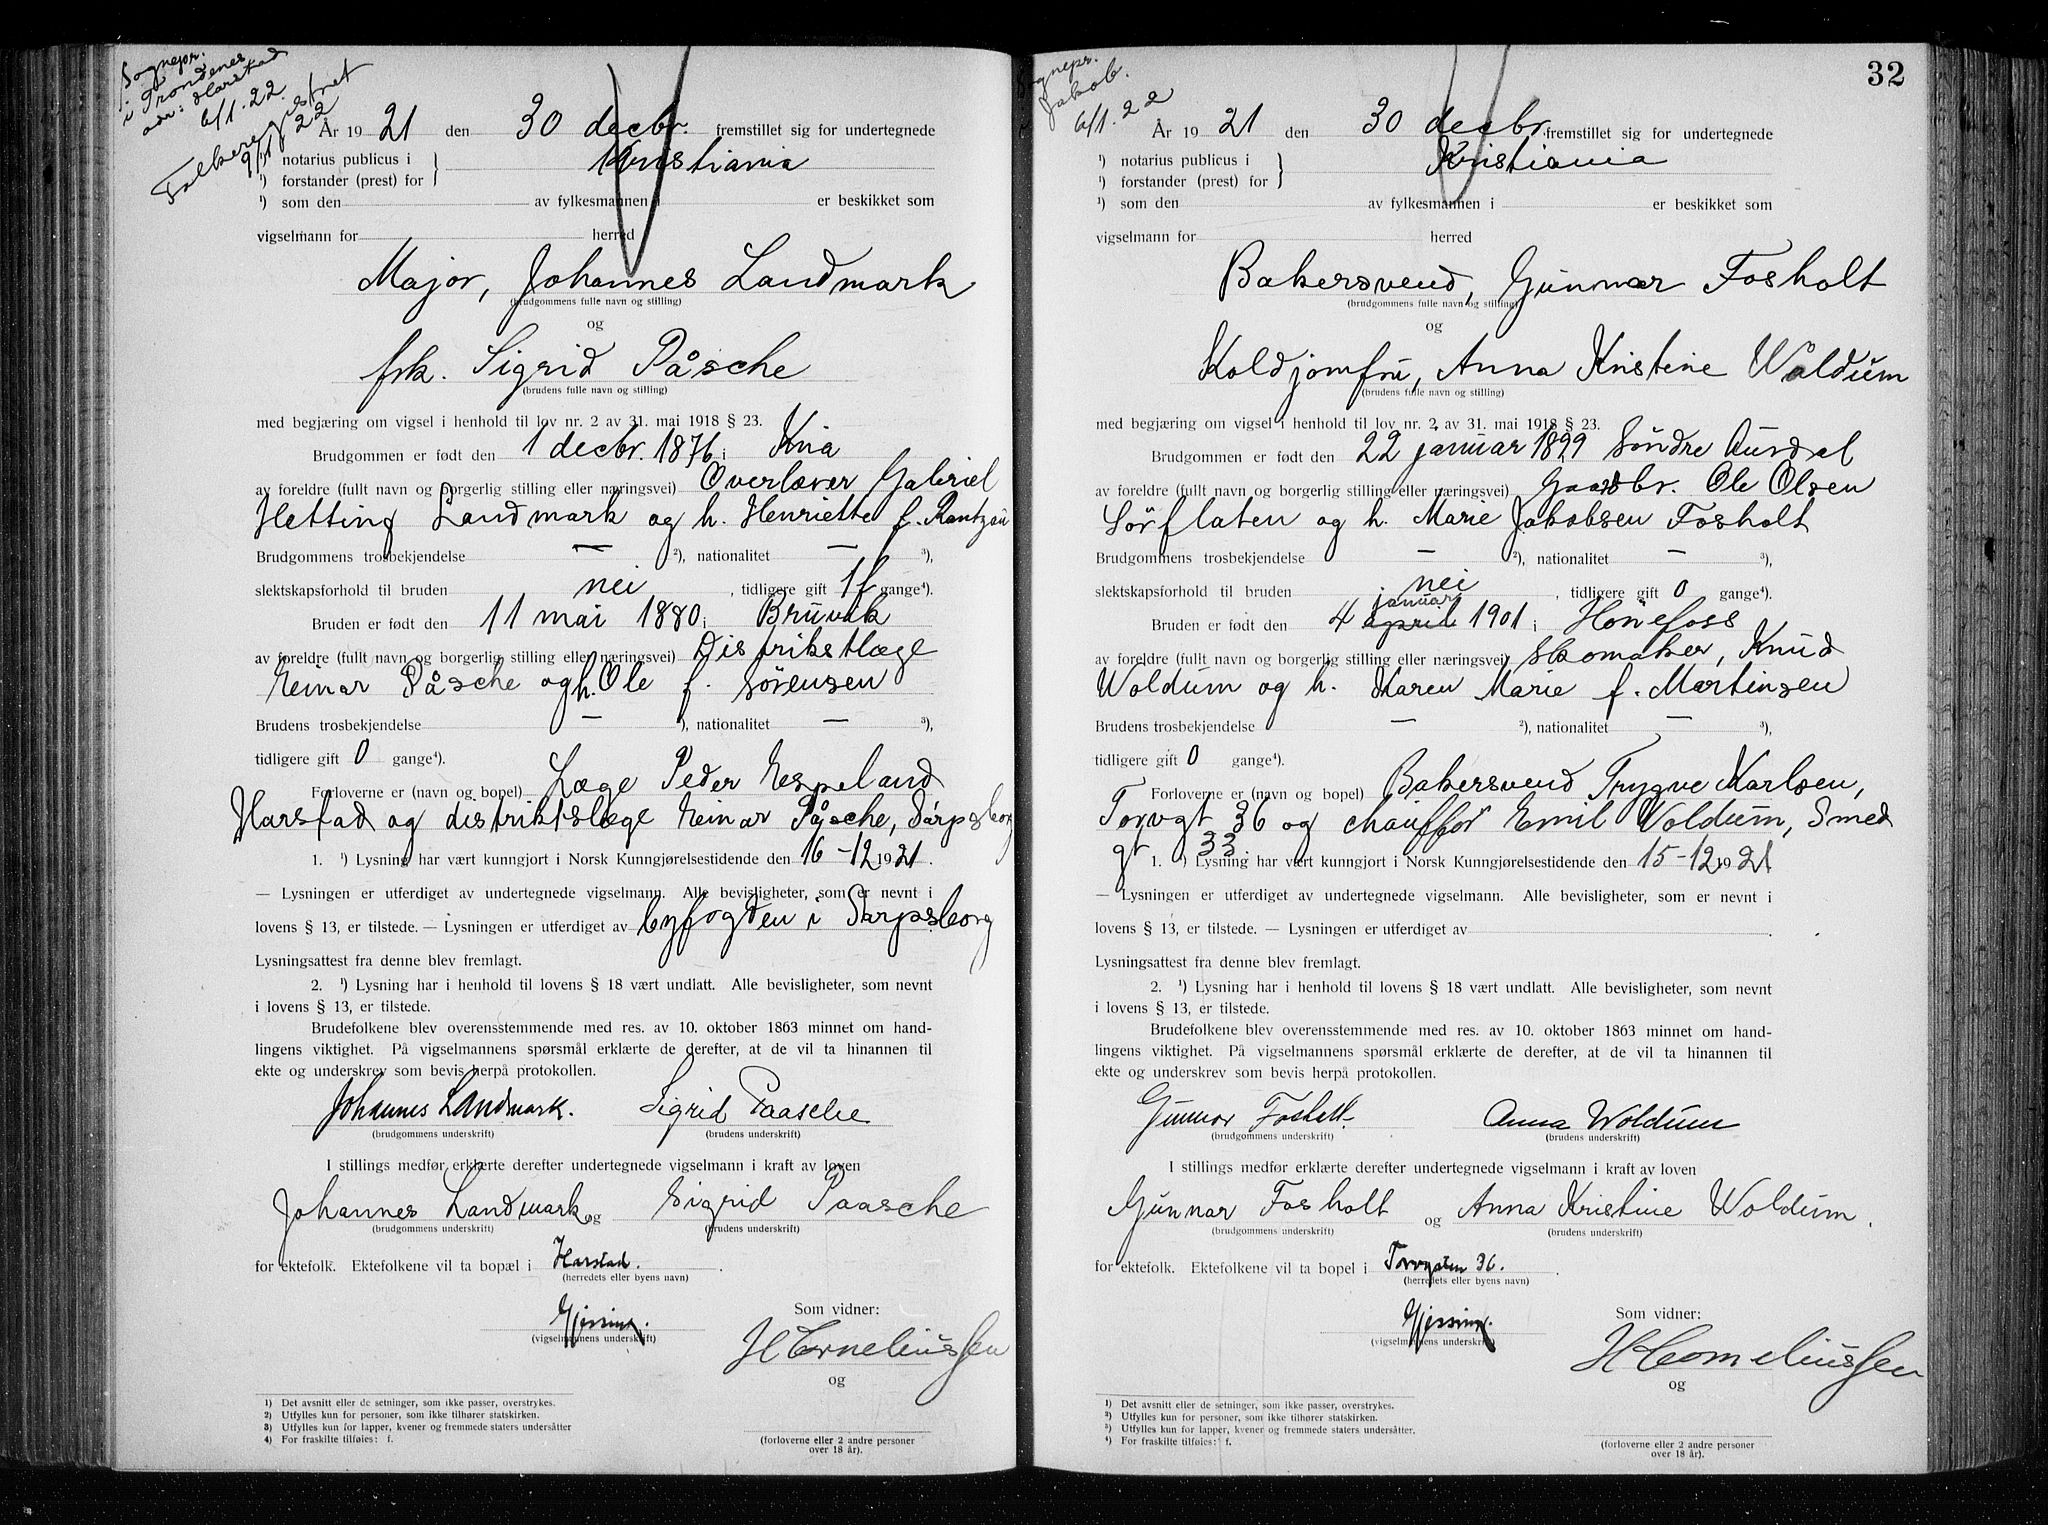 Sognepr.
i Trondenes
adr: Harstad
6/1. 22.
Folkeregistret
9/1 22
År 1921 den 30 decbr. fremstillet sig for undertegnede
¹) notarius publicus i } Kristiania
¹) forstander (prest) for
¹) som den av fylkesmannen i er beskikket som
vigselmann for herred
Major, Johannes Landmark
(brudgommens fulle navn og stilling)
og
frk. Sigrid Påsche
(brudens fulle navn og stilling)
med begjæring om vigsel i henhold til lov nr. 2 av 31. mai 1918 § 23.
Brudgommen er født den 1 decbr. 1876 i Kria
av foreldre (fullt navn og borgerlig stilling eller næringsvei) Overlærer Gabriel
Hetting Landmark og h. Henriette f. Rantzau
Brudgommens trosbekjendelse — ²), nationalitet — ³),
slektskapsforhold til bruden nei , tidligere gift 1f gange⁴).
Bruden er født den 11 mai 1880 i Bruvik
av foreldre (fullt navn og borgerlig stilling eller næringsvei) Distrikstlæge
Einar Påsche og h. Ole f. Sørensen
Brudens trosbekjendelse — ²), nationalitet — ³),
tidligere gift 0 gange⁴).
Forloverne er (navn og bopel) Læge Peder Espeland
Harstad og distriktslæge Einar Påsche, Sarpsborg
1. ¹) Lysning har vært kunngjort i Norsk Kunngjørelsestidende den 16-12 1921.
— Lysningen er utferdiget av undertegnede vigselmann. Alle bevisligheter, som er nevnt i
lovens § 13, er tilstede. — Lysningen er utferdiget av byfogden i Sarpsborg
Lysningsattest fra denne blev fremlagt.
2. ¹) Lysning har i henhold til lovens § 18 vært undlatt. Alle bevisligheter, som nevnt
i lovens § 13, er tilstede.
Brudefolkene blev overensstemmende med res. av 10. oktober 1863 minnet om hand-
lingens viktighet. På vigselmannens spørsmål erklærte de derefter, at de vil ta hinannen til
ekte og underskrev som bevis herpå protokollen.
Johannes Landmark. Sigrid Paasche
(brudgommens underskrift) (brudens underskrift)
I stillings medfør erklærte derefter undertegnede vigselmann i kraft av loven
Johannes Landmark og Sigrid Paasche
(brudgommens underskrift) (brudens underskrift)
for ektefolk. Ektefolkene vil ta bopæl i Harstad.
(herredets eller byens navn)
Gjessing.
(vigselmannens underskrift)
Som vidner:
H Corneliussen
og
(forloverne eller 2 andre personer
over 18 år).
1) Det avsnitt eller de setninger, som ikke passer, overstrykes.
2) Utfylles kun for personer, som ikke tilhører statskirken.
3) Utfylles kun for lapper, kvener og fremmede staters undersåtter
4) For fraskilte tilføies: f.
32
Sognepr.
Jakob.
6/1. 22
År 1921 den 30 decbr. fremstillet sig for undertegnede
¹) notarius publicus i } Kristiania
¹) forstander (prest) for
¹) som den av fylkesmannen i er beskikket som
vigselmann for herred
Bakersvend, Gunnar Fosholt
(brudgommens fulle navn og stilling)
og
Koldjomfru, Anna Kristine Woldum
(brudens fulle navn og stilling)
med begjæring om vigsel i henhold til lov nr. 2 av 31. mai 1918 § 23.
Brudgommen er født den 22 januar 1899 i Søndre Aurdal
av foreldre (fullt navn og borgerlig stilling eller næringsvei) Gaardbr. Ole Olsen
Sørflaten og h. Marie Jakobsen Fosholt
Brudgommens trosbekjendelse — ²), nationalitet — ³),
slektskapsforhold til bruden nei , tidligere gift 0 gange⁴).
januar
Bruden er født den 4 april 1901 i Hønefoss
av foreldre (fullt navn og borgerlig stilling eller næringsvei) Skomaker, Knud
Woldum og h. Karen Marie f. Martinsen
Brudens trosbekjendelse — ²), nationalitet — ³),
tidligere gift 0 gange⁴).
Forloverne er (navn og bopel) Bakersvend Trygve Karlsen,
Torvgt 36 og chauffør Emil Woldum, Smed
gt 33
1. ¹) Lysning har vært kunngjort i Norsk Kunngjørelsestidende den 15-12 1921
— Lysningen er utferdiget av undertegnede vigselmann. Alle bevisligheter, som er nevnt i
lovens § 13, er tilstede. — Lysningen er utferdiget av
Lysningsattest fra denne blev fremlagt.
2. ¹) Lysning har i henhold til lovens § 18 vært undlatt. Alle bevisligheter, som nevnt
i lovens § 13, er tilstede.
Brudefolkene blev overensstemmende med res. av 10. oktober 1863 minnet om hand-
lingens viktighet. På vigselmannens spørsmål erklærte de derefter, at de vil ta hinannen til
ekte og underskrev som bevis herpå protokollen.
Gunnar Fosholt. Anna Woldum
(brudgommens underskrift) (brudens underskrift)
I stillings medfør erklærte derefter undertegnede vigselmann i kraft av loven
Gunnar Fosholt og Anna Kristine Woldum.
(brudgommens underskrift) (brudens underskrift)
for ektefolk. Ektefolkene vil ta bopel i Torvgaten 36.
(herredets eller byens navn)
Gjessing.
(vigselmannens underskrift)
Som vidner:
H Corneliussen
og
(forloverne eller 2 andre personer
over 18 år).
1) Det avsnitt eller de setninger, som ikke passer, overstrykes.
2) Utfylles kun for personer, som ikke tilhører statskirken.
3) Utfylles kun for lapper, kvener og fremmede staters undersåtter.
4) For fraskilte tilføies: f.